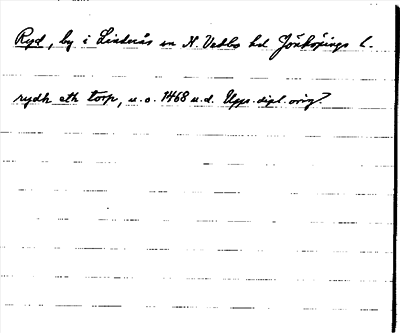 Ryd, by i Linderås sn N. Vedbo hd Jönköpings l.
rydh eth torp, u.o. 1468 u.d. Upps. dipl. orig?